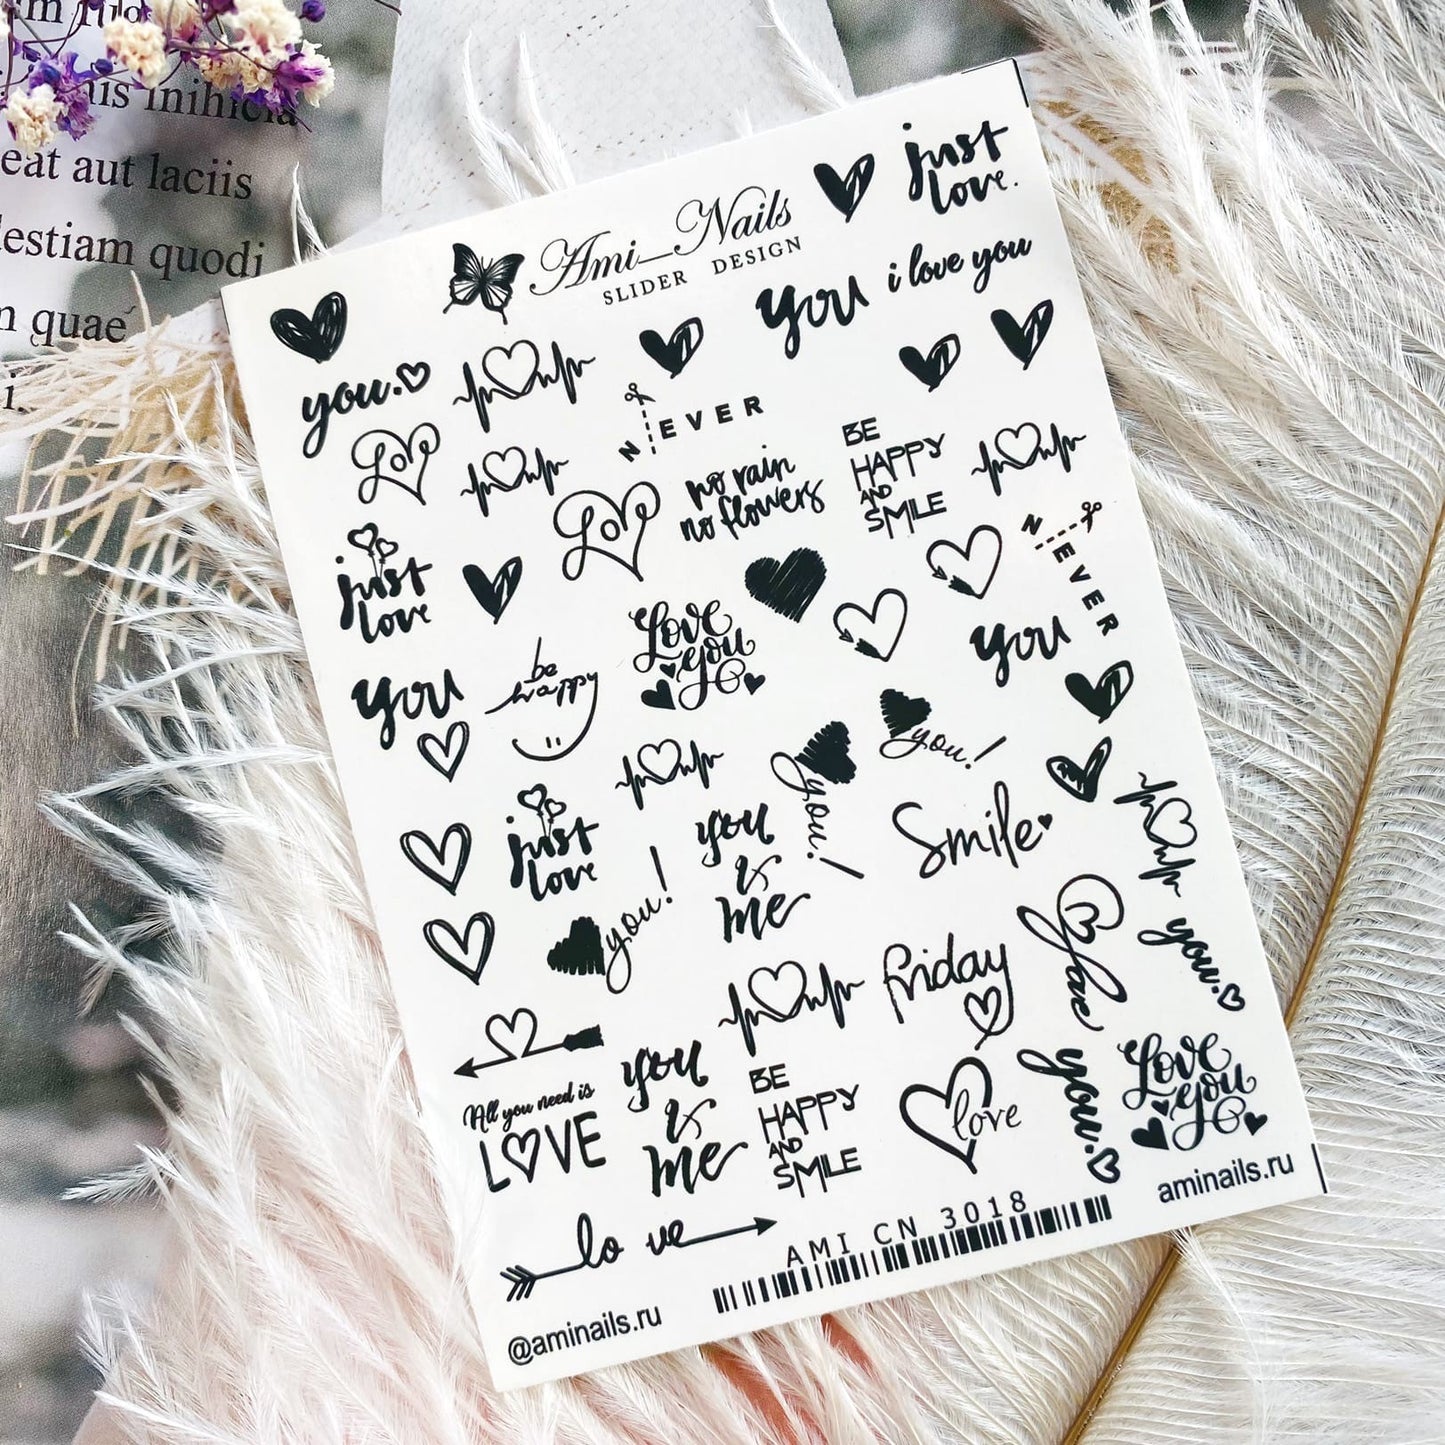 his inihicia
eat aut laciis
lestiam quodi
n quae
Ami_Nails
SLIDER DESIGN
just
love.
you
i love you
you.
NEVER
Love
Love
no rain
no flowers
BE
HAPPY
AND
SMILE
NEVER
just
love
Love
you
you
you
be
happy
you!
you!
just
love
you
&
me
Smile
you!
friday
love
you.
All you need is
LOVE
you
&
me
BE
HAPPY
AND
SMILE
love
you.
Love
you
love
AMI CN 3018
aminails.ru
@aminails.ru